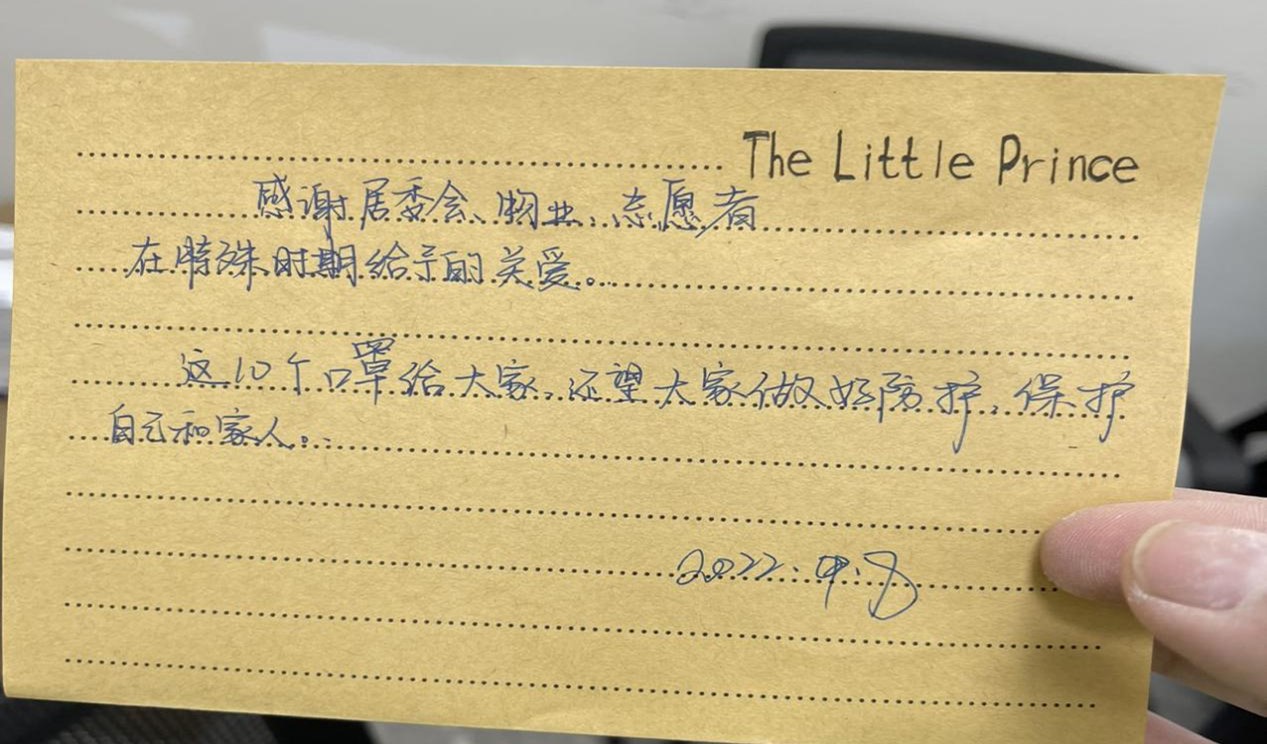 The Little Prince
感谢居委会、物业、志愿者
在特殊时期给予的关爱。
这10个口罩给大家,还望大家做好防护,保护
自己和家人。
2022.4.8